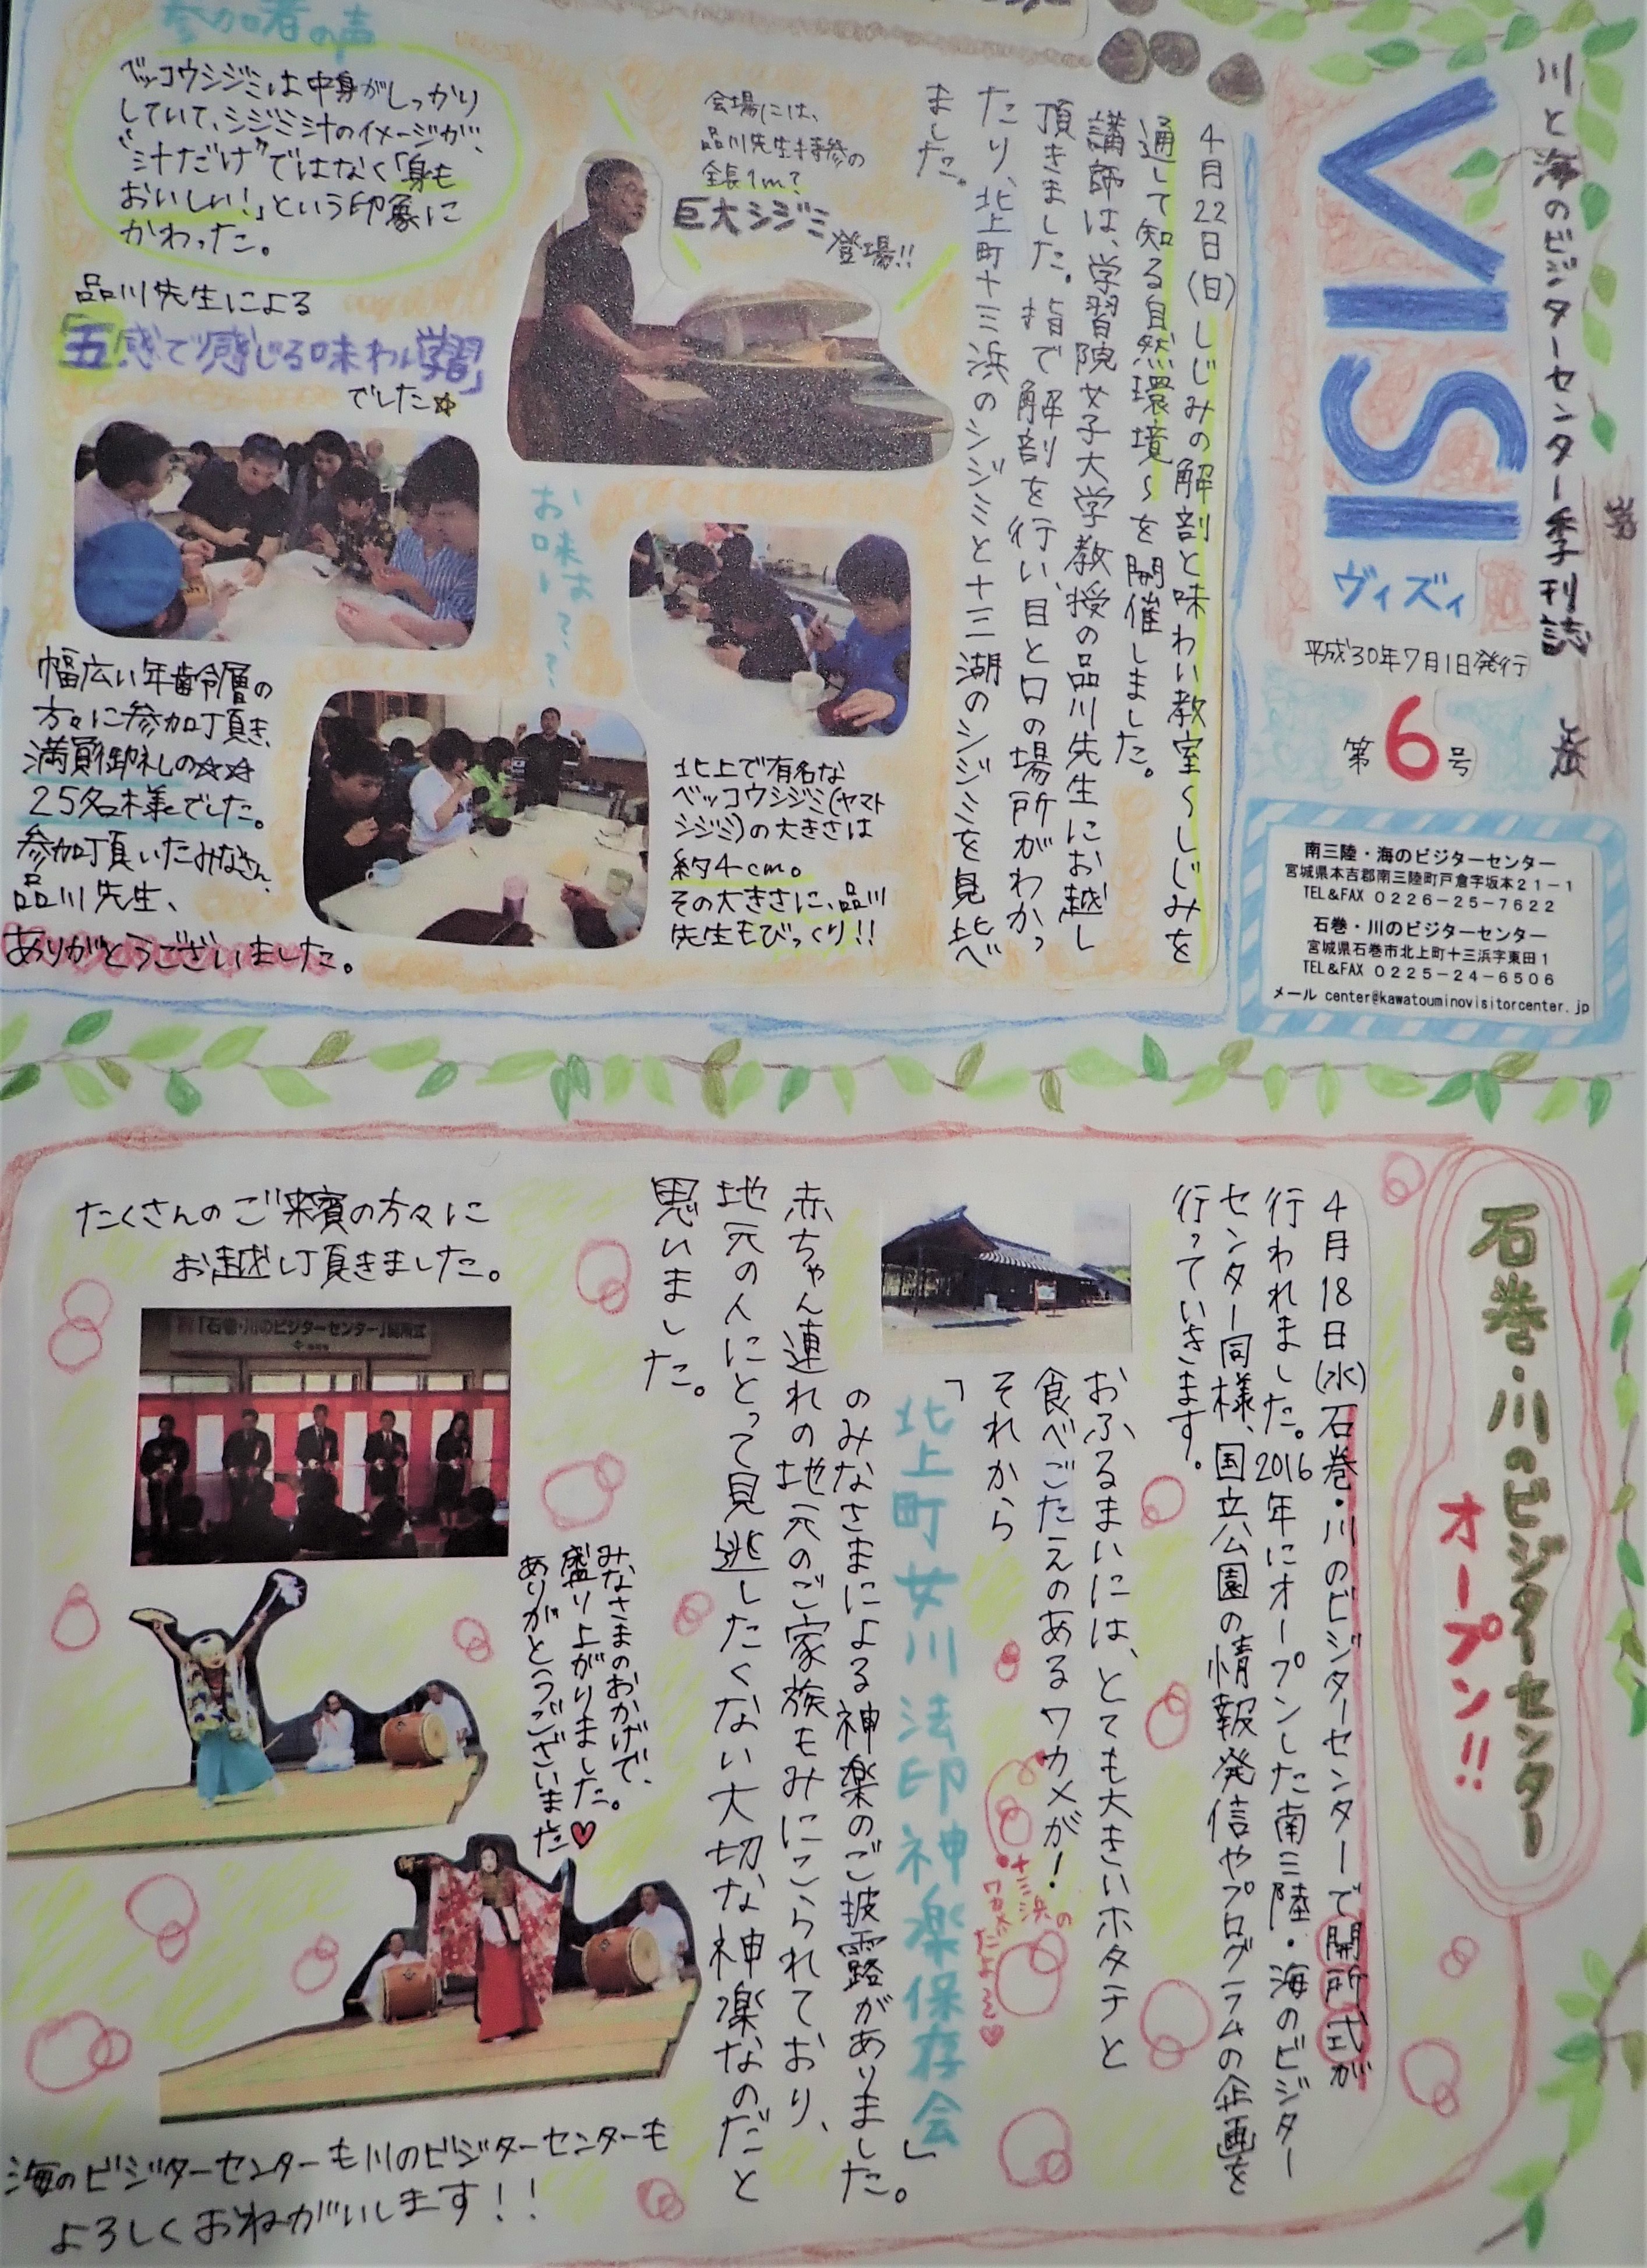 川と海のビジターセンター季刊誌
VISI
ヴィズィ
平成30年7月1日発行
第6号
南三陸・海のビジターセンター
宮城県本吉郡南三陸町戸倉字坂本21-1
TEL&FAX 0226-25-7622
石巻・川のビジターセンター
宮城県石巻市北上町十三浜字東田1
TEL&FAX 0225-24-6506
メール center@kawatouminovisitorcenter.jp
4月22日(日)しじみの解剖と味わい教室～しじみを
通して知る自然環境～を開催しました。
講師は、学習院女子大学教授の品川先生にお越し
頂きました。指で解剖を行い、目と口の場所がわかっ
たり、北上町十三浜のシジミと十三湖のシジミを見比べ
ました。
会場には、
品川先生持参の
全長1m?
巨大シジミ
登場!!
参加者の声
ベッコウシジミは中身がしっかり
していて、シジミ汁のイメージが、
"汁だけ"ではなく「身も
おいしい!」という印象に
かわった。
品川先生による
「五感で感じる味わい学習」
でした☆
お味は?
北上で有名な
ベッコウシジミ(ヤマト
シジミ)の大きさは
約4cm。
その大きさに、品川
先生もびっくり!!
幅広い年齢層の
方々に参加頂き、
満員御礼の☆☆
25名様でした。
参加頂いたみなさん、
品川先生、
ありがとうございました。
石巻・川のビジターセンター
オープン!!
4月18日(水)石巻・川のビジターセンターで開所式が
行われました。2016年にオープンした南三陸・海のビジター
センター同様、国立公園の情報発信やプログラムの企画を
行っていきます。
おふるまいには、とても大きいホタテと
食べごたえのあるワカメが!
十三浜の
ワカメ
だよ♡
それから
「北上町女川法印神楽保存会」
のみなさまによる神楽のご披露がありました。
赤ちゃん連れの地元のご家族もみにこられており、
地元の人にとって見逃したくない大切な神楽なのだと
思いました。
たくさんのご来賓の方々に
お越し頂きました。
「石巻・川のビジターセンター」開所式
みなさまのおかげで、
盛り上がりました。
ありがとうございました♡
海のビジターセンターも川のビジターセンターも
よろしくおねがいします!!